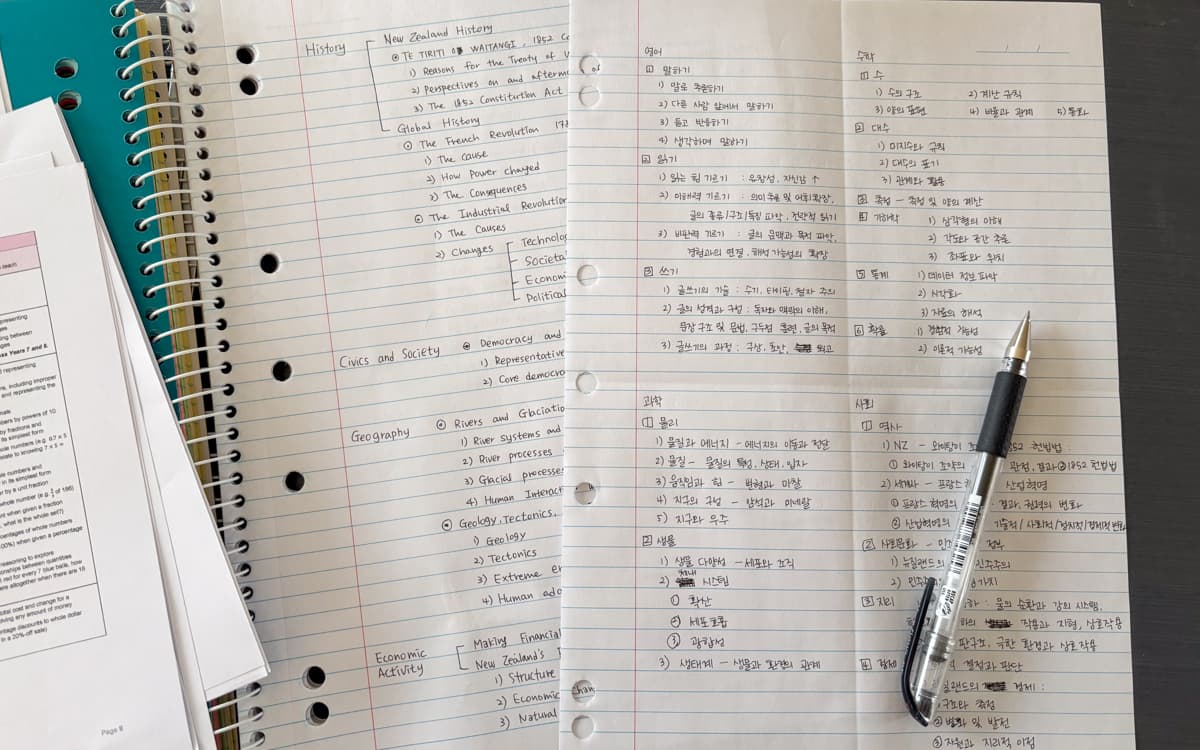 representing
ges
ling between
ges
ss Years 7 and 8.
representing
ns, including improper
and representing the
mals
bers by powers of 10
by fractions and
its simplest form
ole numbers (e.g. 0.7 × 5
elate to knowing 7 × 5 =
ole numbers and
r in its simplest form
er by a unit fraction
whole number (e.g.
nt when given a fraction
, what is the whole set?)
centages of whole numbers
00%) when given a percentage
easoning to explore
onships between quantities
red for every 7 blue balls, how
are altogether when there are 18
total cost and change for a
olving any amount of money
entage discounts to whole dollar
in a 20%-off sale)
Page 8
History
New Zealand History
⊙ TE TIRITI WAITANGI, 1852 Co
1) Reasons for the Treaty of W
2) Perspectives on and afterm
3) The 1852 Constitution Act
Global History
⊙ The French Revolution 178
1) The Cause
2) How Power changed
3) The Consequences
⊙ The Industrial Revolution
1) The Causes
2) Changes
Technolog
Societa
Economi
Political
Civics and Society
⊙ Democracy and
1) Representative
2) Core democra
Geography
⊙ Rivers and Glaciation
1) River systems and
2) River processes
3) Glacial processes
4) Human Interact
⊙ Geology, Tectonics,
1) Geology
2) Tectonics
3) Extreme en
4) Human ada
Economic Activity
Making Financial
New Zealand's
1) Structure
2) Economic
3) Natural
영어
1 말하기
1) 말로 추론하기
2) 다른 사람 앞에서 말하기
3) 듣고 반응하기
4) 생각하며 말하기
2 읽기
1) 읽는 힘 기르기 : 유창성, 자신감 ↑
2) 이해력 기르기 : 의미 추론 및 어휘 확장,
글의 종류/구조/특징 파악, 전략적 읽기
3) 비판력 기르기 : 글의 문맥과 목적 파악,
경험과의 연결, 해석 가능성의 확장
3 쓰기
1) 글쓰기의 기술 : 수기, 타이핑, 철자 주의
2) 글의 성격과 구성 : 독자와 맥락의 이해,
문장 구조 및 문법, 구두점 훈련, 글의 목적
3) 글쓰기의 과정 : 구상, 초안, 퇴고
수학
1 수
1) 수의 구조 2) 계산 규칙
3) 양의 표현 4) 비율과 관계 5) 통화
2 대수
1) 미지수와 규칙
2) 대수의 표기
3) 관계와 활용
3 측정 - 측정 및 양의 계산
4 기하학 1) 삼각형의 이해
2) 각도와 공간 추론
3) 좌표와 위치
5 통계 1) 데이터 정보 파악
2) 시각화
3) 자료의 해석
6 확률 1) 경험적 가능성
2) 이론적 가능성
과학
1 물리
1) 물질과 에너지 - 에너지의 이동과 전달
2) 물질 - 물질의 특성, 상태, 입자
3) 움직임과 힘 - 변형과 마찰
4) 지구의 구성 - 암석과 미네랄
5) 지구와 우주
2 생물
1) 생물 다양성 - 세포와 조직
2) 체내 시스템
① 확산
② 세포호흡
③ 광합성
3) 생태계 - 생물과 환경의 관계
사회
1 역사
1) NZ - 와이탕이 조 852 헌법법 :
① 와이탕이 조약의 관점, 결과 ② 1852 헌법법
2) 세계사 - 프랑스 산업혁명
① 프랑스 혁명의 결과, 권력의 변화
② 산업혁명의 기술적/사회적/정치적/경제적 변화
2 사회문화 - 민 정부
1) 뉴질랜드의 민주주의
2) 민주 가치
3 지리 하 : 물의 순환과 강의 시스템,
하의 작용과 지형, 상호작용
판구조, 극한 환경과 상호작용
4 경제 결정과 판단
질랜드의 경제 :
구조와 측정
② 변화 및 발전
③ 자원과 지리적 이점